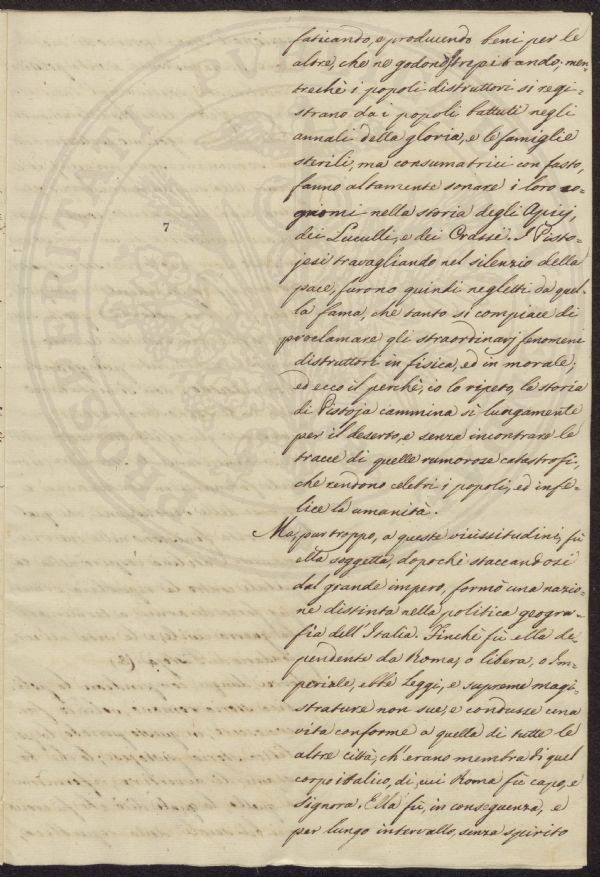 faticando, e producendo beni per le
altre, che ne godono strepitando; men=
trechè i popoli distruttori si regi=
strano da i popoli battuti negli
annali della gloria, e le famiglie
sterili, ma consumatrici con fasto,
fanno altamente sonare i loro co=
gnomi nella storia degli Apicj,
dei Luculli, e dei Crassi. I Pisto=
jesi travagliando nel silenzio della
pace, furono quindi negletti da quel=
la fama, che tanto si compiace di
proclamare gli straordinarj fenomeni
distruttori in fisica, ed in morale;
ed ecco il perchè, io lo ripeto, la storia
di Pistoja cammina sì lungamente
per il deserto, e senza incontrare le
tracce di quelle rumorose catastrofi,
che rendono celebri i popoli, ed infe=
lice la umanità.
Ma, pur troppo, a queste vicissitudini, fù
ella soggetta, dopochè staccandosi
dal grande impero, formò una nazio=
ne distinta nella politica geogra=
fia dell'Italia. Finchè fù ella de=
pendente da Roma, o libera, o Im=
periale, ebbe leggi, e supreme magi=
strature non sue, e condusse una
vita conforme a quella di tutte le
altre città, ch'erano membra di quel
corpo italico, di cui Roma fù capo, e
signora. Ella fù, in conseguenza, e
per lungo intervallo, senza spirito
7
PROSPERITATI PUBLICAE